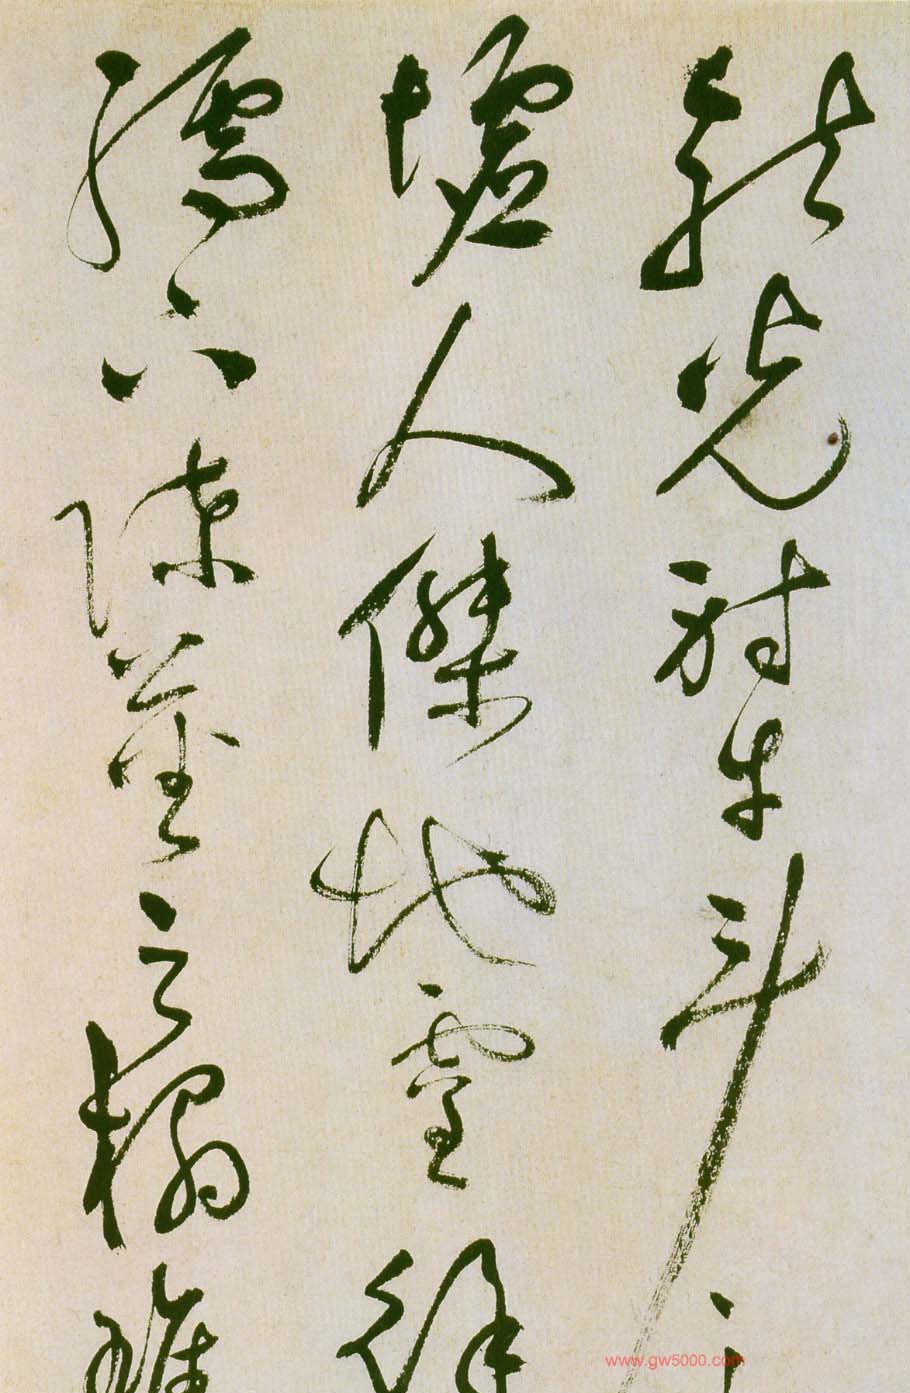 龍光射牛斗之
墟人傑地靈徐
孺下陳蕃之榻雄
www.gw5000.com